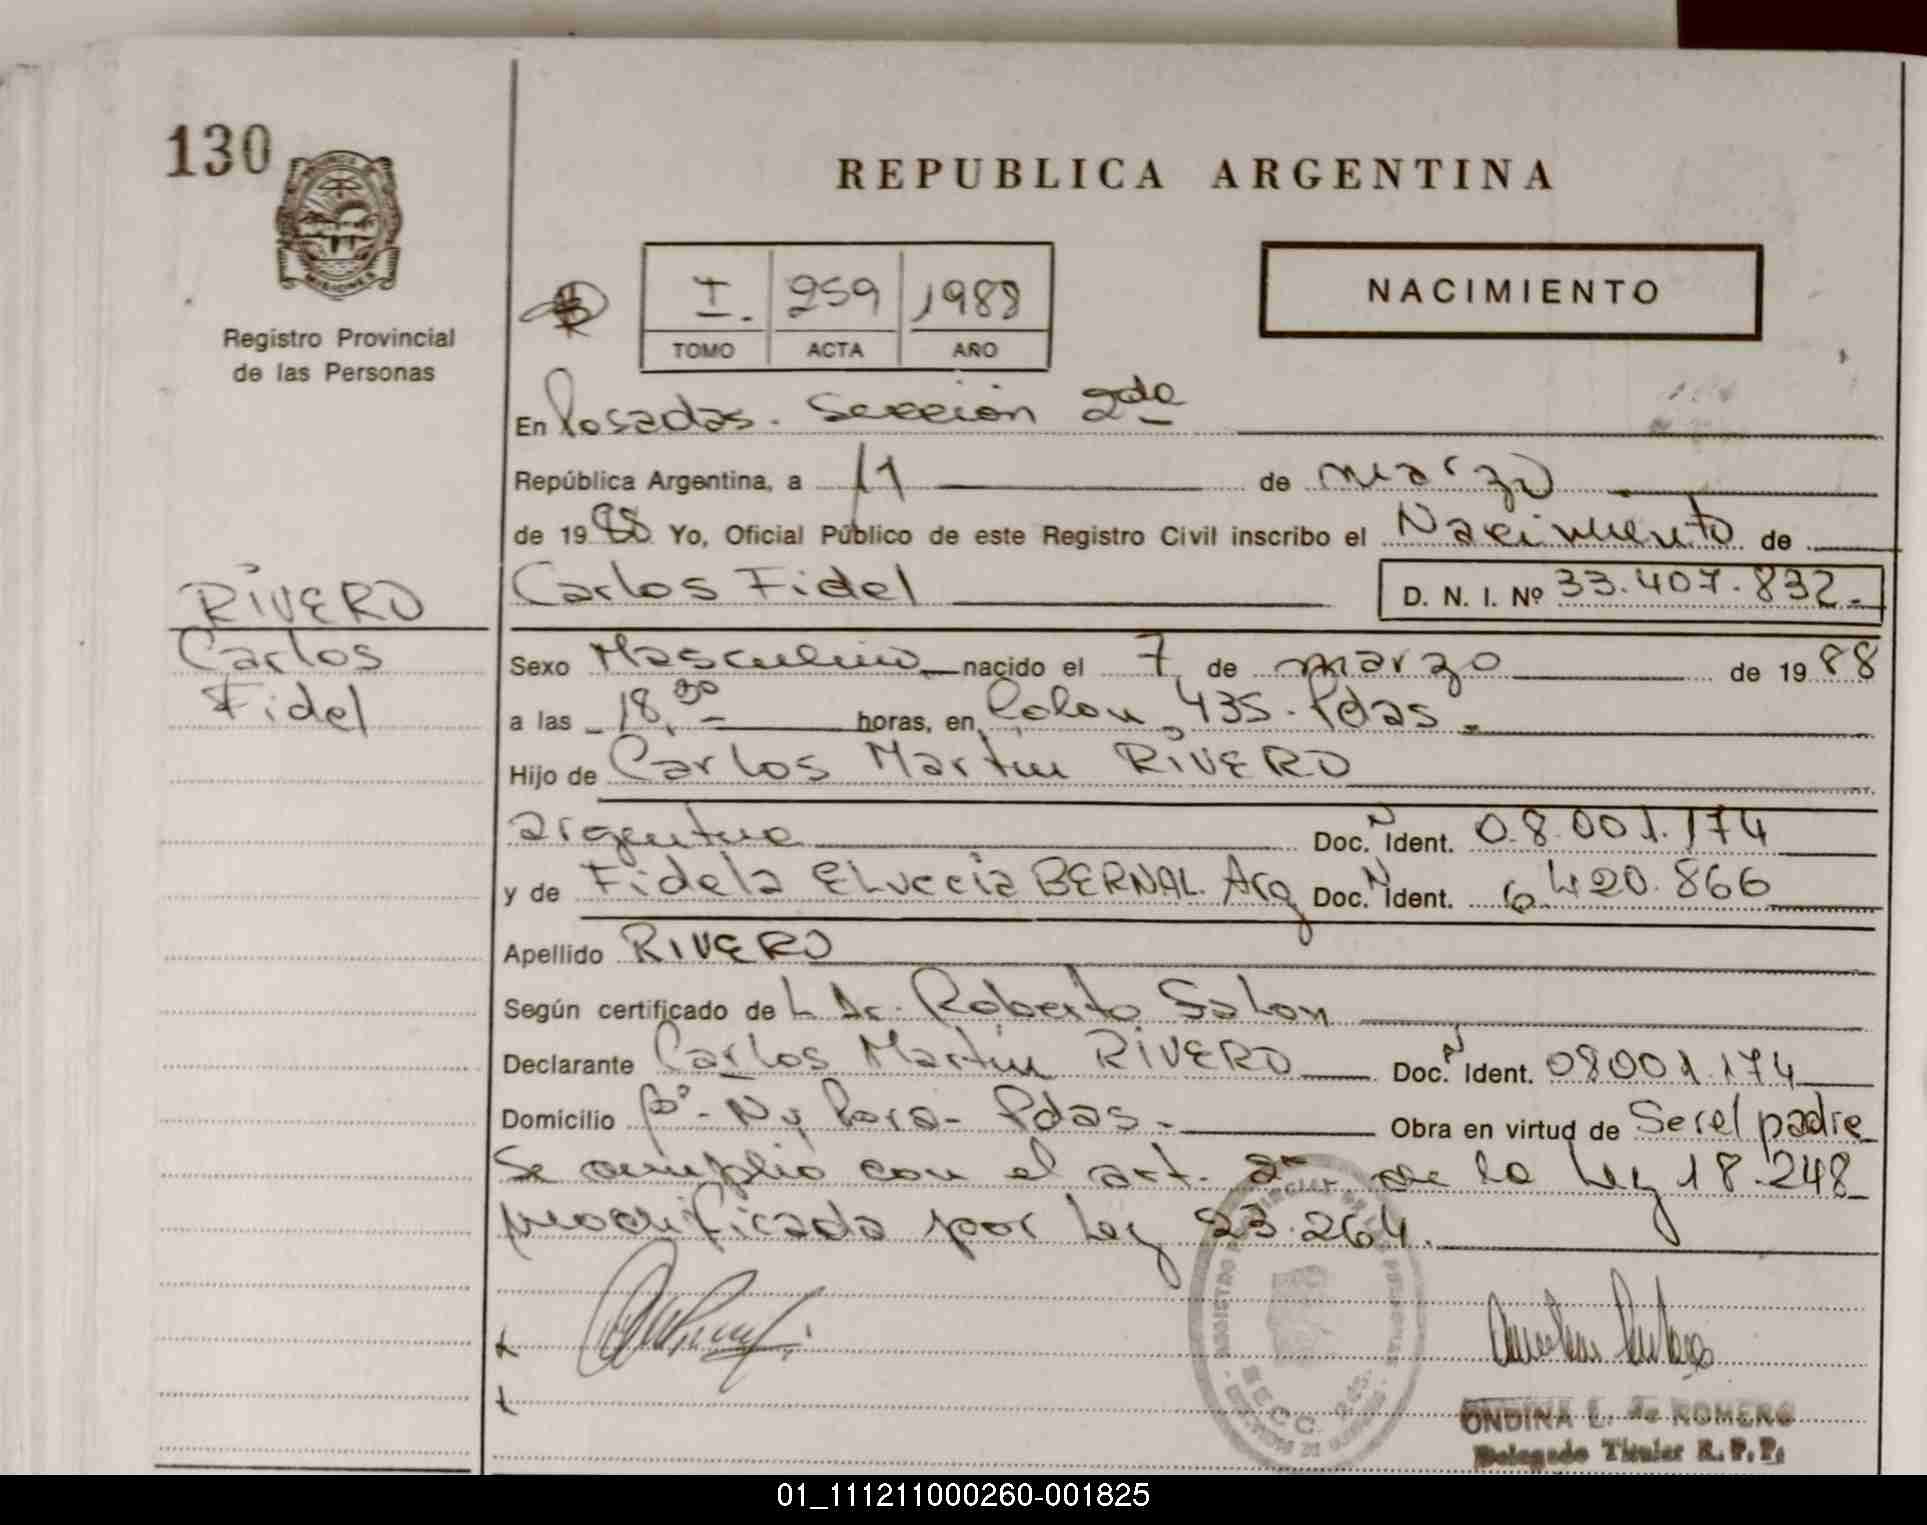 130
REPUBLICA ARGENTINA
MISIONES
Registro Provincial
de las Personas
I. 259 1988
TOMO ACTA AÑO
NACIMIENTO
En Posadas. Sección 2da
República Argentina, a 11 de marzo
de 1988 Yo, Oficial Público de este Registro Civil inscribo el Nacimiento de
Carlos Fidel D. N. I. Nº 33.407.832.-
RIVERO
Carlos
Fidel
Sexo Masculino nacido el 7 de marzo de 1988
a las 18,30 horas, en Colon 435. Pdas.
Hijo de Carlos Martin RIVERO
argentino Doc. N Ident. 08.001.174
y de Fidela BERNAL. Arg Doc. N Ident. 6.420.866
Apellido RIVERO
Según certificado de Roberto
Declarante Carlos Martin RIVERO Doc. N Ident. 08001.174
Domicilio Bº - Pdas.- Obra en virtud de Ser el padre
Se cumplió con el art. 2º de la Ley 18.248
modificada por Ley 23.264.
ONDINA E. de ROMERO
Delegado Titular R. P. P.
01_111211000260-001825